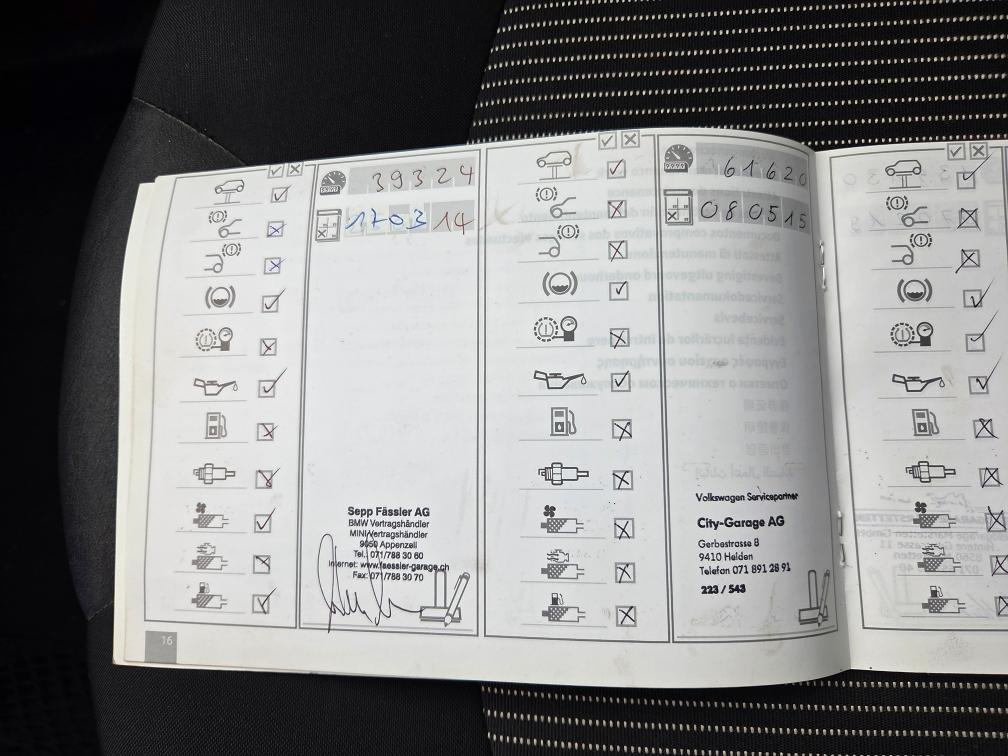 39324
170314
Sepp Fässler AG
BMW Vertragshändler
MINI Vertragshändler
9050 Appenzell
Tel.: 071/788 30 60
Internet: www.faessler-garage.ch
Fax: 071/788 30 70
16
61620
080515
Volkswagen Servicepartner
City-Garage AG
Gerbestrasse 8
9410 Heiden
Telefon 071 891 28 91
223 / 543